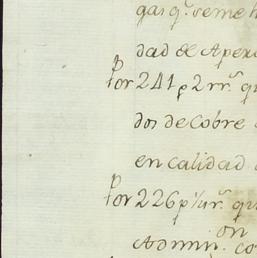 gas q.e se me h
dad de Apero
Por 241 p 2 rr.s q
dos de Cobre
en calidad
Por 226 p 1/2 rr.s qu
on
Admin. co